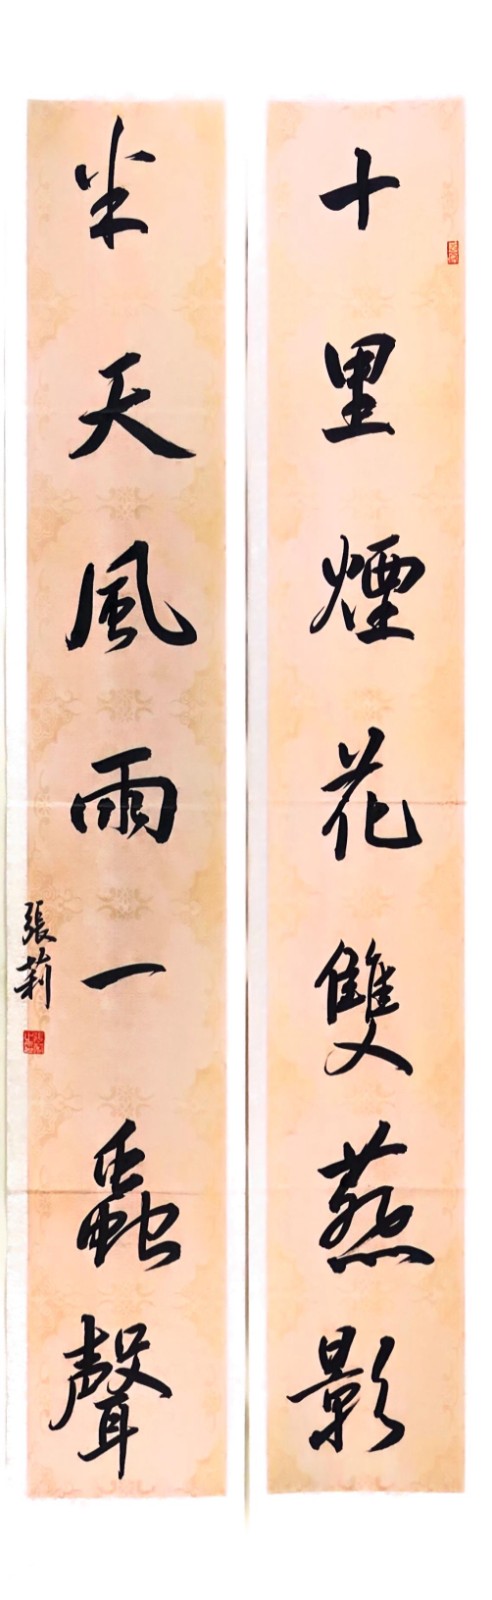 十里煙花雙燕影
半天風雨一蟲聲
張莉